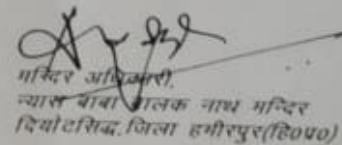 मन्दिर अधिकारी,
न्यास बाबा बालक नाथ मन्दिर
दियोटसिद्ध, जिला हमीरपुर(हि0प्र0)